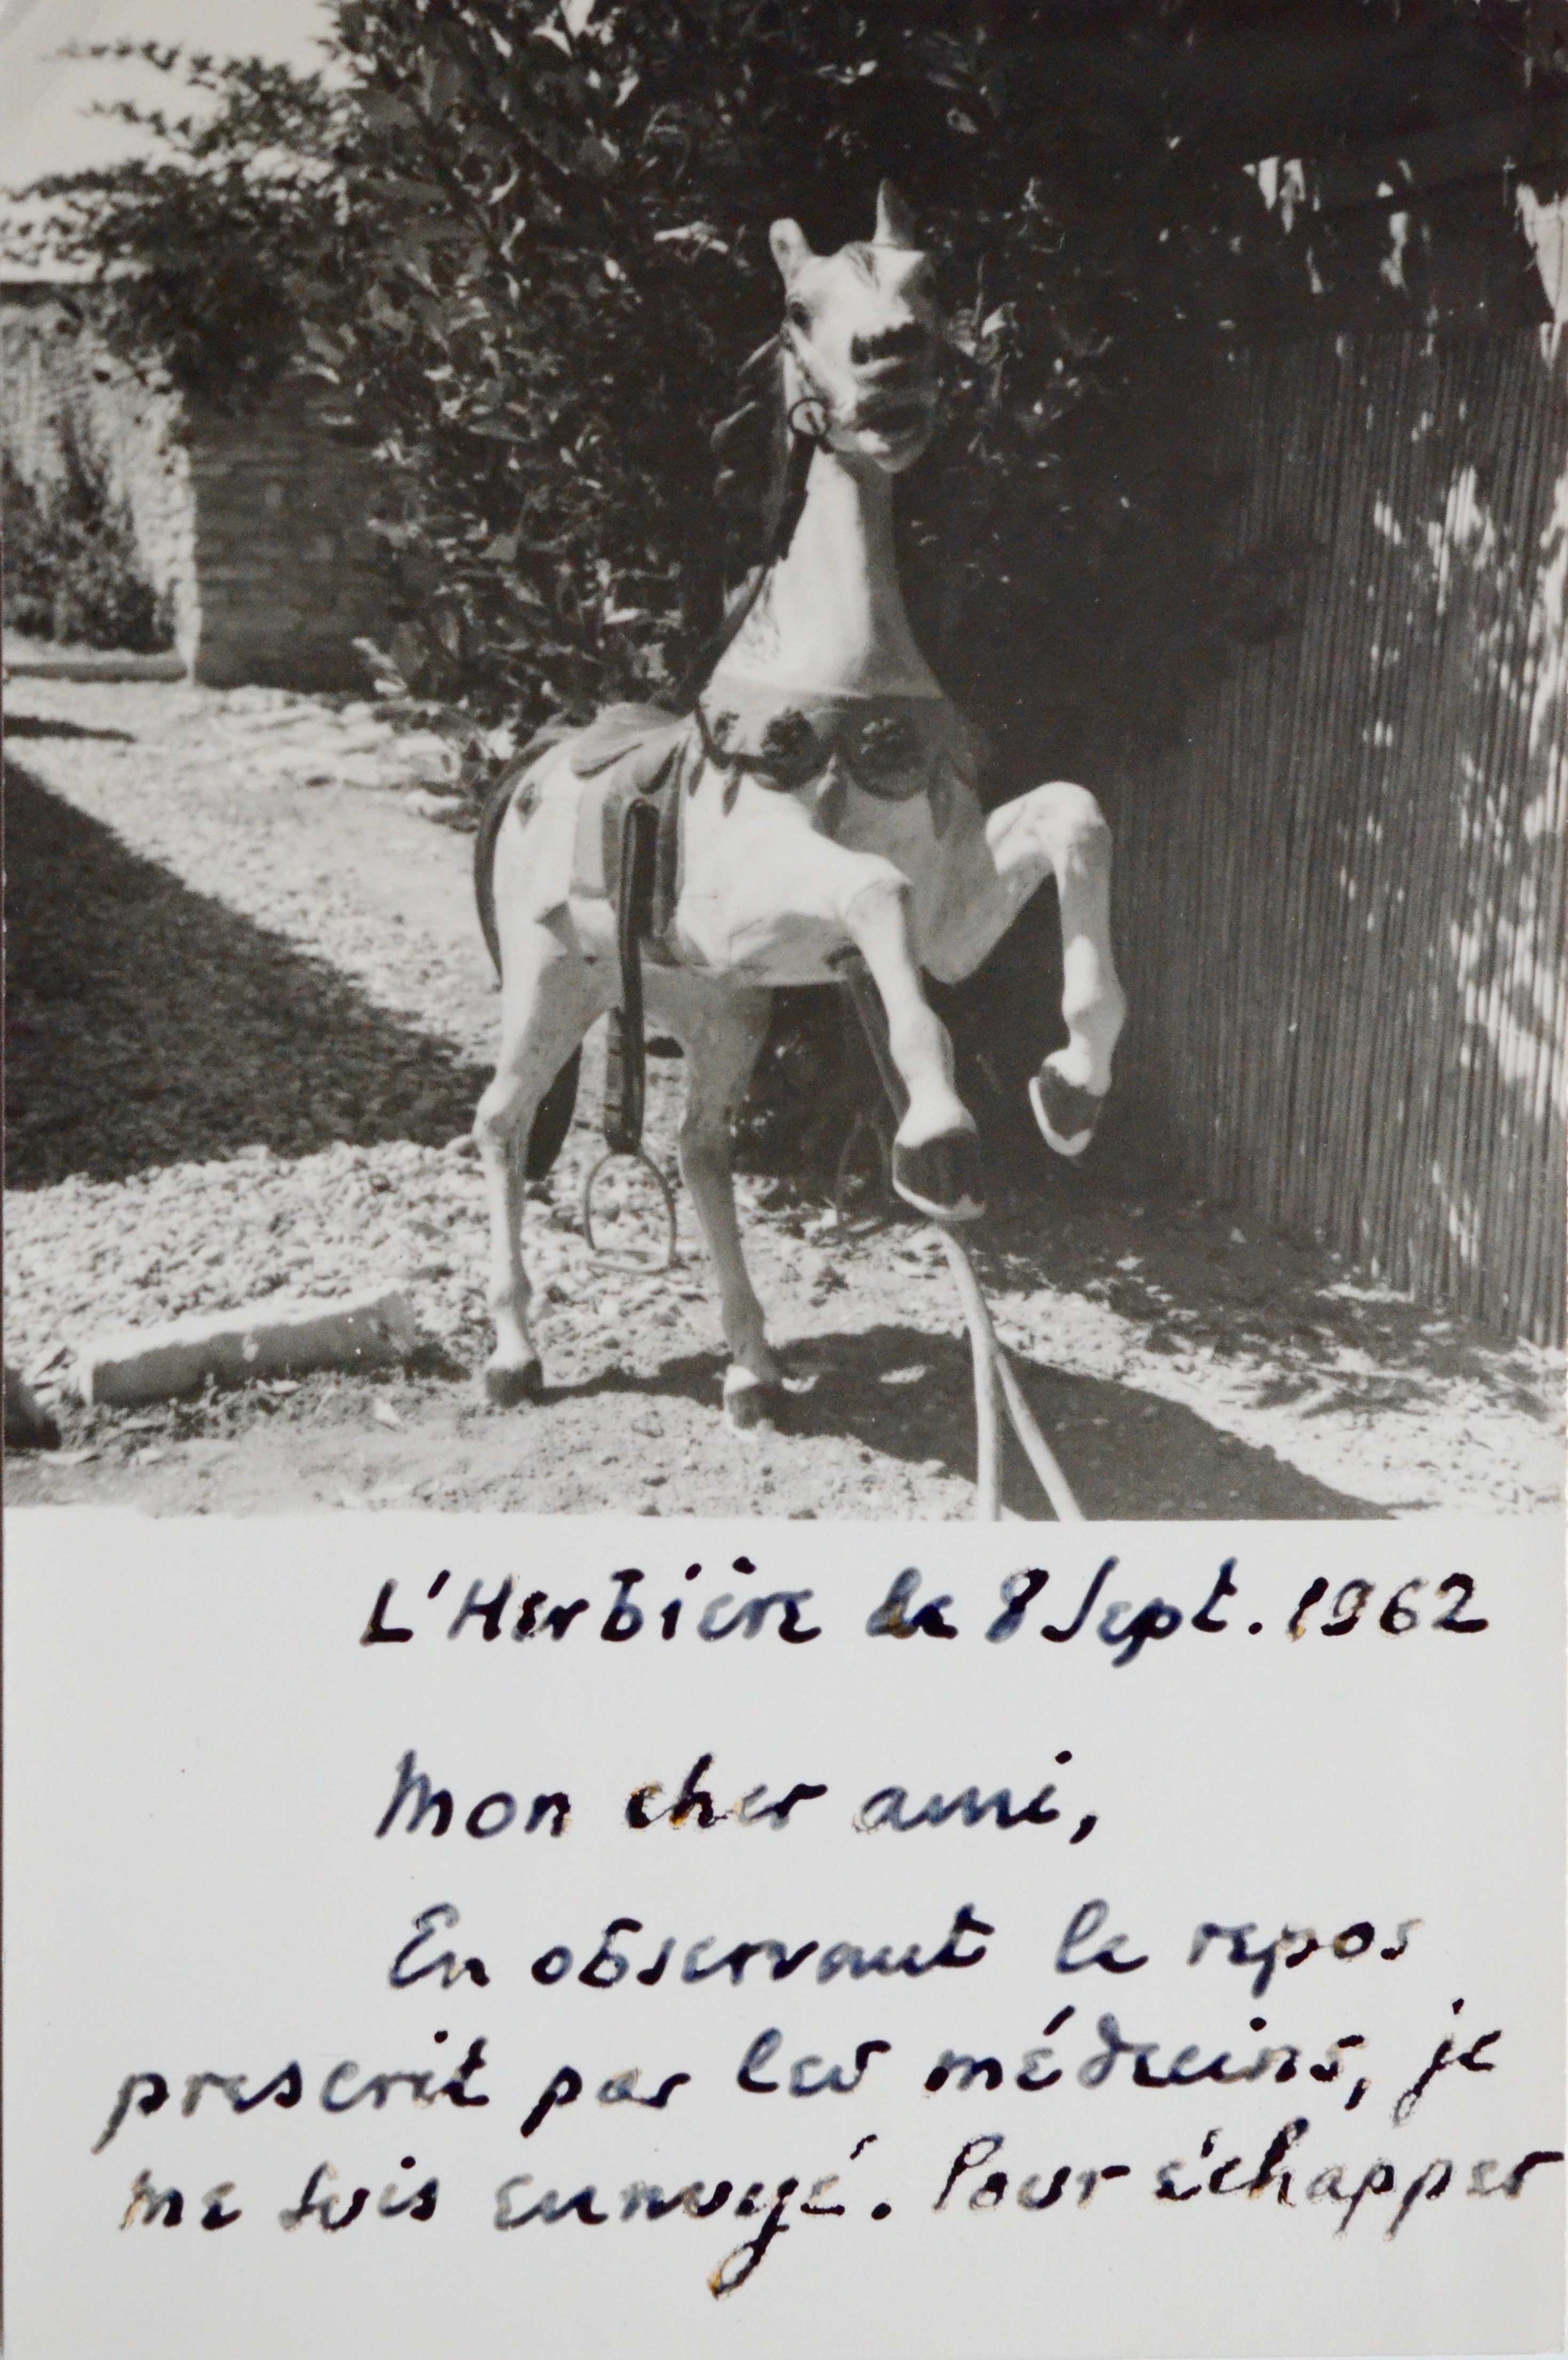 L'Herbière le 8 Sept. 1962
Mon cher ami,
En observant le repos
prescrit par les médecins, je
me suis ennuyé. Pour échapper